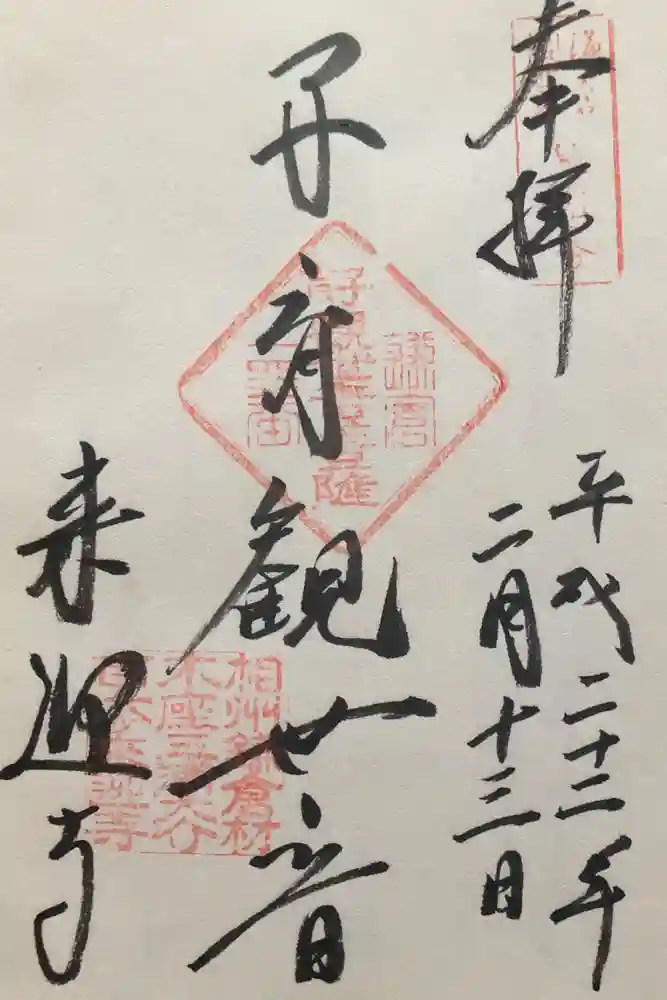 奉拝
平成二十二年
二月十三日
子育観世音
来迎寺
鎌倉
相州鎌倉材